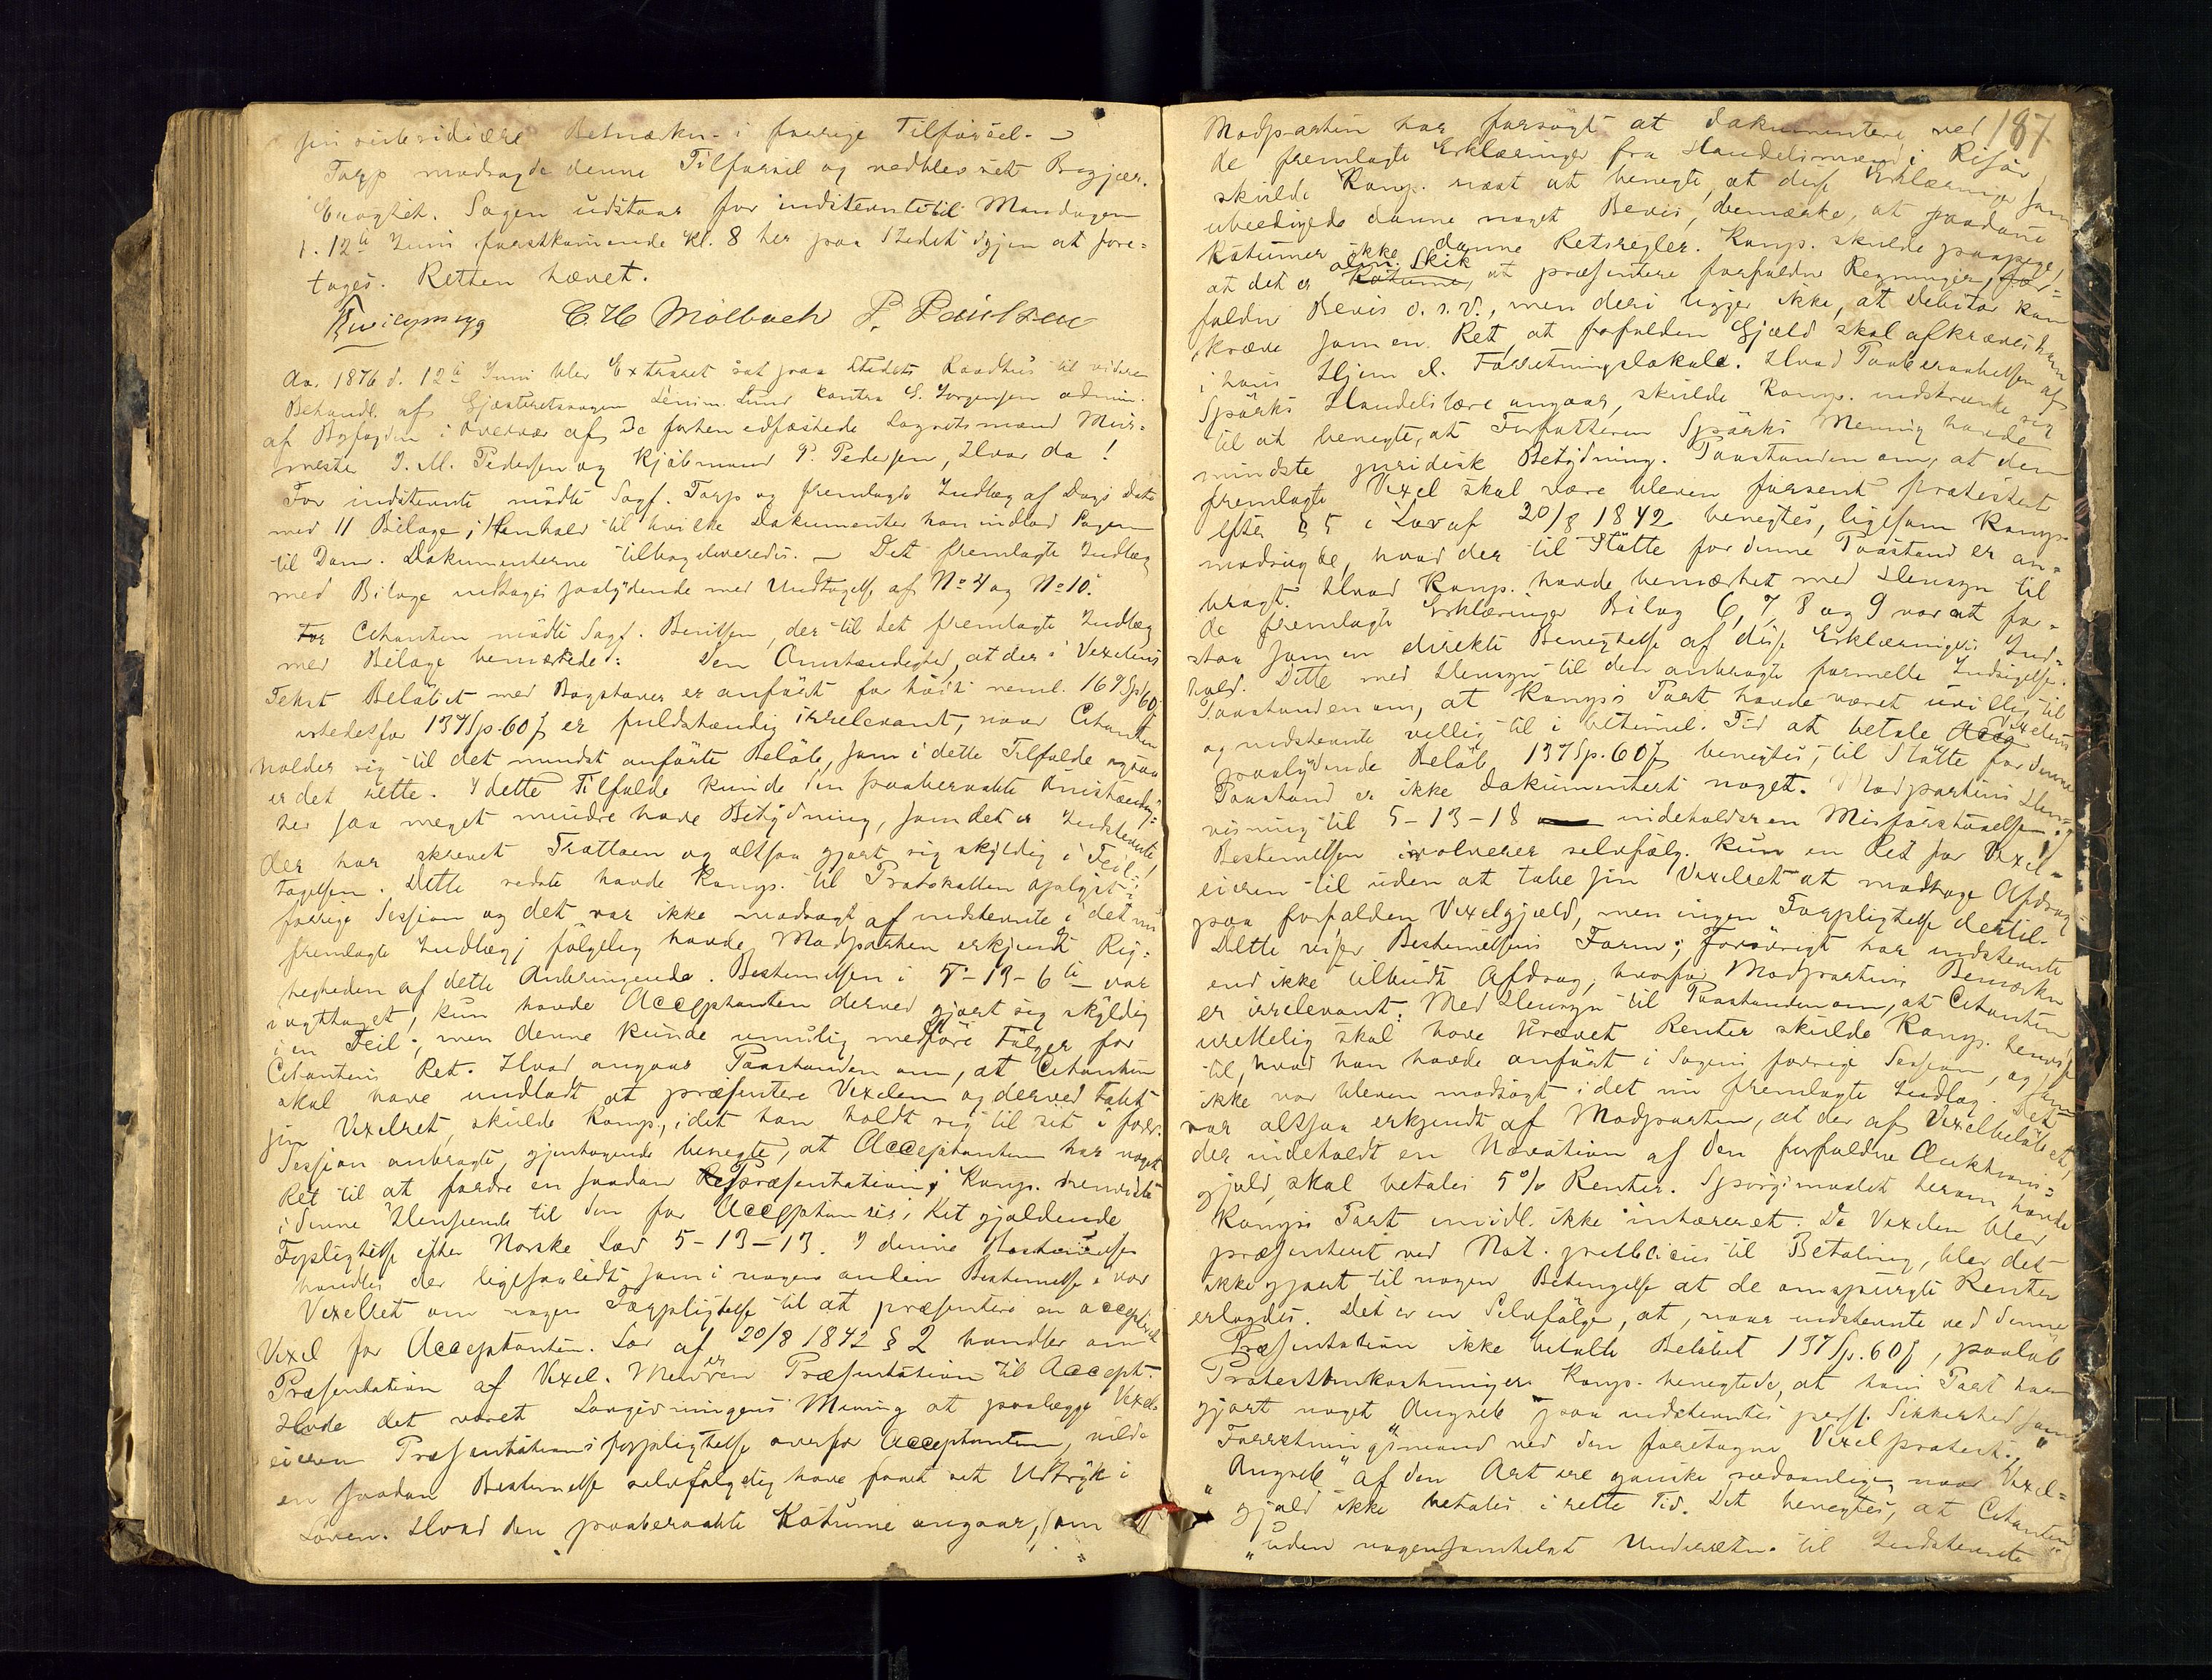 sin subsidiære Bemærkn. i forrige Tilførsel. –
Torp modsagde denne Tilførsel og vedblev sit Begjær.
Eragtet. Sagen udstaar for indstevnte til Mandagen
d. 12te Juni førstkommende Kl. 8 her paa Stedet igjen at fore=
tages. Retten hævet.
C. H. Mølbach P. Paulsen
Ao. 1876 d. 12te Juni blev Extraret sat paa Stedets Raadhus til videre
Behandl. af Gjæsteretssagen Lund contra S. Jørgensen admin.
af Byfogden i Overvær af De forhen edfæstede Lagretsmænd Mur=
mester J. M. Pedersen og Kjøbmand P. Pedersen, Hvor da!
For indstevnte mødte Sagf. Torp og fremlagde Indlæg af Dags Dato
med 11 Bilage, i Henhold til hvilke Dokumenter han indlod Sagen
til Dom. Dokumenterne tilbageleveredes. – Det fremlagte Indlæg
med Bilage indtages saalydende med Undtagelse af No 4 og No 10.
For Citanten mødte Sagf. Berntsen, der til det fremlagte Indlæg
med Bilage bemærkede: Den Omstændighed, at der i Vexelens
Tekst Beløbet med Bogstaver er anført for høit neml. 169 Sp 60
istedetfor 137 Sp. 60 ß er fuldstændig irrelevant, naar Citanten
holder sig til det mindst anførte Beløb, som i dette Tilfælde ogsaa
er det rette. I dette Tilfælde kunde den paaberaabte Omstændig=
hed saa meget mindre have Betydning, som det er Indstevnte,
der har skrevet Tratten og altsaa gjort sig skyldig i Feil=
tagelsen. Dette sidste havde Komp. til Protokollen oplyst i
forrige Session og det var ikke modsagt af indstevnte i det nu
fremlagte Indlæg; følgelig havde Modparten erkjendt Rig=
tigheden af dette Anbringende. Bestemelsen i 5–13–6te var
iagttaget, kun havde Acceptanten derved gjort sig skyldig
i en Feil; men denne kunde umulig medføre Følger for
Citantens Ret. Hvad angaar Paastanden om, at Citanten
skal have undladt at præsentere Vexelen og derved tabt
sin Vexelret, skulde Komp., idet han holdt sig til sit i forr.
Session anbragte, gjentagende benegte, at Acceptanten har noget
Ret til at fordre en saadan Præsentation; Komp. henviste
i denne Henseende til den for Acceptanters Ret gjældende
Forpligtelse efter Norske Lov 5–13–13. I denne Bestemelse
handles der ligesaalidt som i nogen anden Bestemelse i vor
Vexelret om nogen Forpligtelse til at præsentere en acceptert
Vexel for Acceptanten. Lov af 20/8 1842 § 2 handler om
Præsentation af Vexel. Men er Præsentation til Accept.
Havde det været Lovgivningens Mening at paalægge Vexel=
eieren Præsentationsforpligtelse overfor Acceptanten, vilde
en saadan Bestemelse selvfølgelig have faaet sit Udtryk i
Loven. Hvad den paaberaabte Kotume angaar, som
187
Modparten har forsøgt at dokumentere ved
de fremlagte Erklæringer fra Handelsmænd i Risør
skulde Komp. næst at benegte, at disse Erklæringer som
ubeedigede danne noget Bevis, bemærke, at saadane
Kotumer ikke danne Retsregler. Komp. skulde paapege,
at det er alm. Skik at præsentere forfaldne Regninger, for=
faldne Bevis o.s.v., men deri ligger ikke, at Debitor kan
kræve som en Ret, at forfalden Gjæld skal afkræves ham
i hans Hjem el. Forretningslokale. Hvad Paaberaabelsen af
Spärks Handelslære angaar, skulde Komp. indskrænke sig
til at benegte, at Forfatteren Spärks Mening havde
mindste juridisk Betydning. Paastanden om, at den
fremlagte Vexel skal være bleven forsent protestert
efter § 5 i Lov af 20/8 1842 benegtes, ligesom Komp.
modsagde, hvad der til Støtte for denne Paastand er an=
bragt. Hvad Komp. havde bemærket med Hensyn til
de fremlagte Erklæringer Bilag 6, 7, 8 og 9 var at for=
staa som en direkte Benegtelse af disse Erklæringers Ind=
hold. Dette med Hensyn til den anbragte formelle Indsigelse.
Paastanden om, at Komps Part havde været uvillig til
og indstevnte villig til i betimel. Tid at betale Vexelens
paalydende Beløb 137 Sp. 60 ß benegtes; til Støtte for denne
Paastand er ikke dokumentert noget. Modpartens Hen=
visning til 5–13–18 indeholder en Misforstaaelse.
Bestemelsen involverer selvfølg. kun en Ret for Vexel=
eieren til uden at tabe sin Vexelret at modtage Afdrag
paa forfalden Vexelgjæld, men ingen Forpligtelse dertil.
Dette viser Bestemelsens Form; forøvrigt har indstevnte
end ikke tilbudt Afdrag, hvorfor Modpartens Bemærkn
er irrelevant. Med Hensyn til Paastanden om, at Citanten
urettelig skal have krævet Renter skulde Komp. henvise
til, hvad han havde anført i Sagens forrige Session, og som
ikke var bleven modsagt i det nu fremlagte Indlæg. Det
var altsaa erkjendt af Modparten, at der af Vexelbeløbet,
der indeholdt en Novation af den forfaldne Auktions=
gjæld, skal betales 5% Renter. Spørgsmaalet herom havde
Komps Part imidl. ikke interesseret. Da Vexelen blev
præsentert ved Not. publicus til Betaling, blev det
ikke gjort til nogen Betingelse at de omspurgte Renter
erlagdes. Det er en Selvfølge, at, naar indstevnte ved denne
Præsentation ikke betalte Beløbet 137 Sp. 60 ß, paaløb
Protestomkostninger. Komp. benegtede, at hans Part har
gjort noget „Angreb paa indstevntes pers. Sikkerhed som
Forretningsmand ved den foretagne Vexelprotest.“
„Angreb“ af den Art ere ganske sædvanlige, naar Vexel=
gjæld ikke betales i rette Tid. Det benegtes, at Citanten
„uden nogensomhelst Underretn. til Indstevnte“